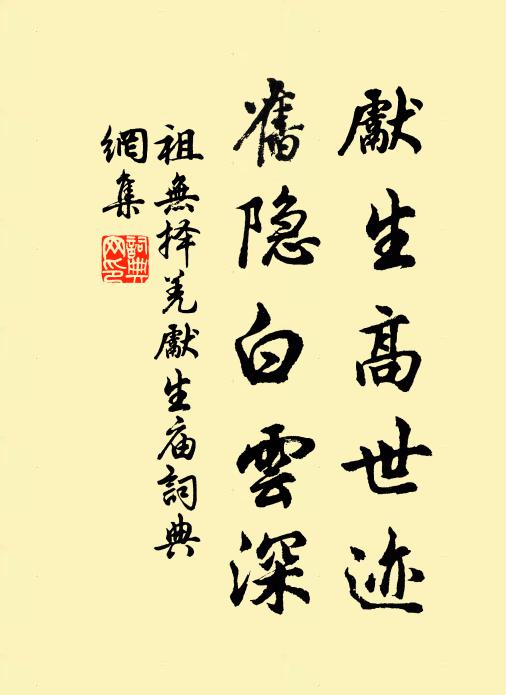 獻生高世迹
舊隐白雲深
祖無择羌獻生庙詞典
網集
詞典网印